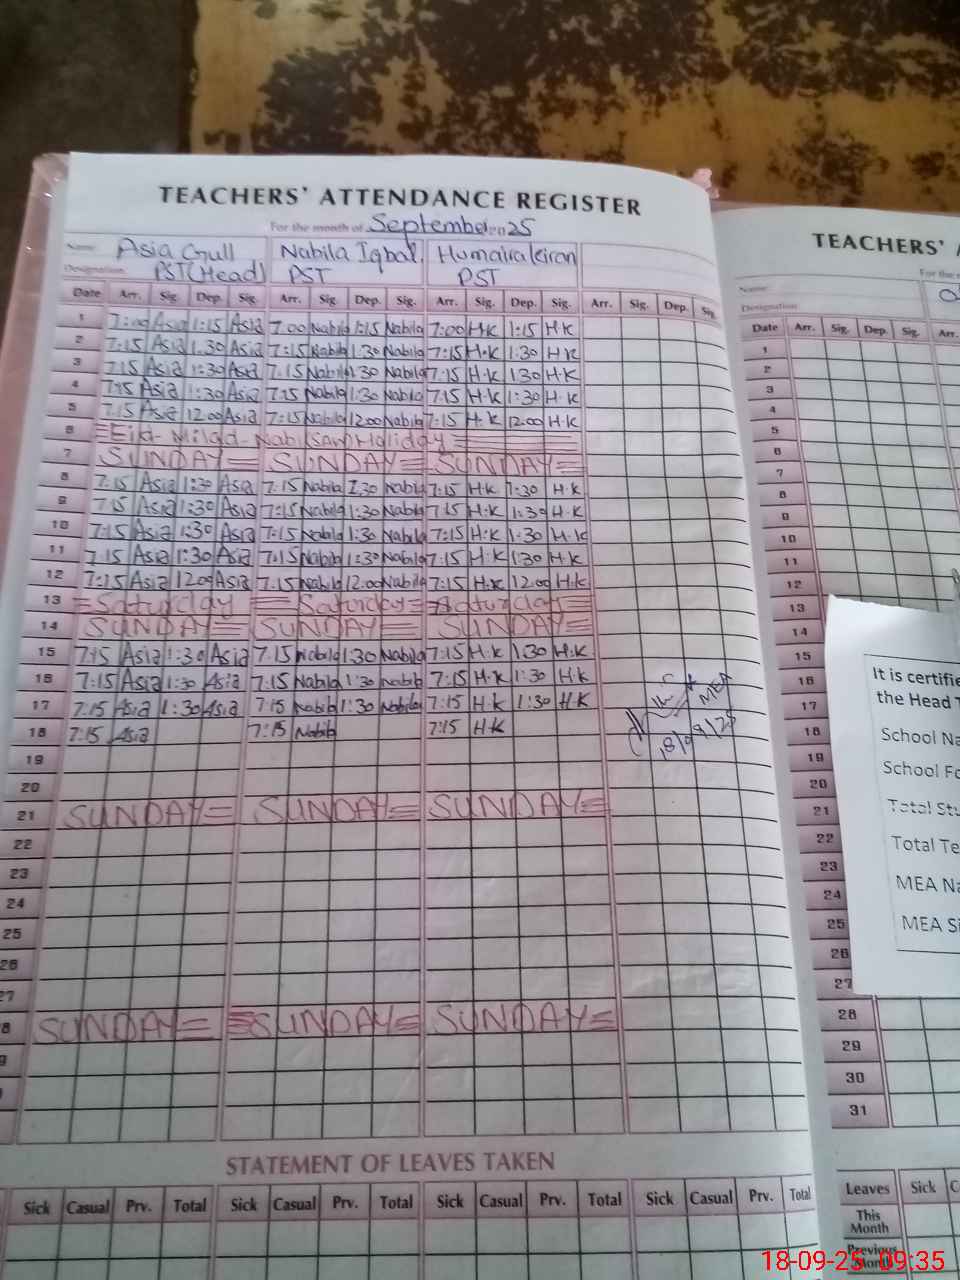 TEACHERS' ATTENDANCE REGISTER
For the month of September 2025
Name Asia Gull Nabila Iqbal Humaira kiran
Designation PST(Head) PST PST
Date Arr. Sig. Dep. Sig. Arr. Sig. Dep. Sig. Arr. Sig. Dep. Sig. Arr. Sig. Dep. Sig.
1 7:00 Asia 1:15 Asia 7.00 Nabila 1:15 Nabila 7:00 H.K 1:15 H.K
2 7:15 Asia 1.30 Asia 7:15 Nabila 1:30 Nabila 7:15 H.K 1:30 H.K
3 7.15 Asia 1:30 Asia 7.15 Nabila 1:30 Nabila 7:15 H.K 1:30 H.K
4 7:15 Asia 1:30 Asia 7.15 Nabila 1:30 Nabila 7.15 H.K 1:30 H.K
5 7.15 Asia 12.00 Asia 7:15 Nabila 12.00 Nabila 7:15 H.K 12.00 H.K
6 Eid-Milad-Nabi(saw)Holiday
7 SUNDAY SUNDAY SUNDAY
8 7:15 Asia 1:30 Asia 7.15 Nabila 1.30 Nabila 7:15 H.K 1:30 H.K
9 7:15 Asia 1:30 Asia 7:15 Nabila 1:30 Nabila 7.15 H.K 1:30 H.K
10 7:15 Asia 1:30 Asia 7:15 Nabila 1:30 Nabila 7:15 H.K 1:30 H.K
11 7.15 Asia 1:30 Asia 7:15 Nabila 1:30 Nabila 7:15 H.K 1:30 H.K
12 7:15 Asia 12.00 Asia 7.15 Nabila 12:00 Nabila 7:15 H.K 12.00 H.K
13 Saturday Saturday Saturday
14 SUNDAY SUNDAY SUNDAY
15 7:15 Asia 1:30 Asia 7.15 Nabila 1:30 Nabila 7:15 H.K 1:30 H.K
16 7:15 Asia 1:30 Asia 7:15 Nabila 1:30 Nabila 7:15 H.K 1:30 H.K
17 7:15 Asia 1:30 Asia 7:15 Nabila 1:30 Nabila 7:15 H.K 1:30 H.K
18 7:15 Asia 7:15 Nabila 7:15 H.K
MEA
19
20
21 SUNDAY SUNDAY SUNDAY
22
23
24
25
26
27
8 SUNDAY SUNDAY SUNDAY
9
STATEMENT OF LEAVES TAKEN
Sick Casual Prv. Total Sick Casual Prv. Total Sick Casual Prv. Total Sick Casual Prv. Total
TEACHERS'
Name:
Designation
Date Arr. Sig. Dep. Sig. Arr.
1
2
3
4
5
6
7
8
9
10
11
12
13
14
15
16
17
18
19
20
21
22
23
24
25
26
27
28
29
30
31
Leaves Sick
This Month
Previous Month
It is certifie
the Head T
School Na
School Fo
Total Stu
Total Te
MEA Na
MEA Si
18-09-25 09:35